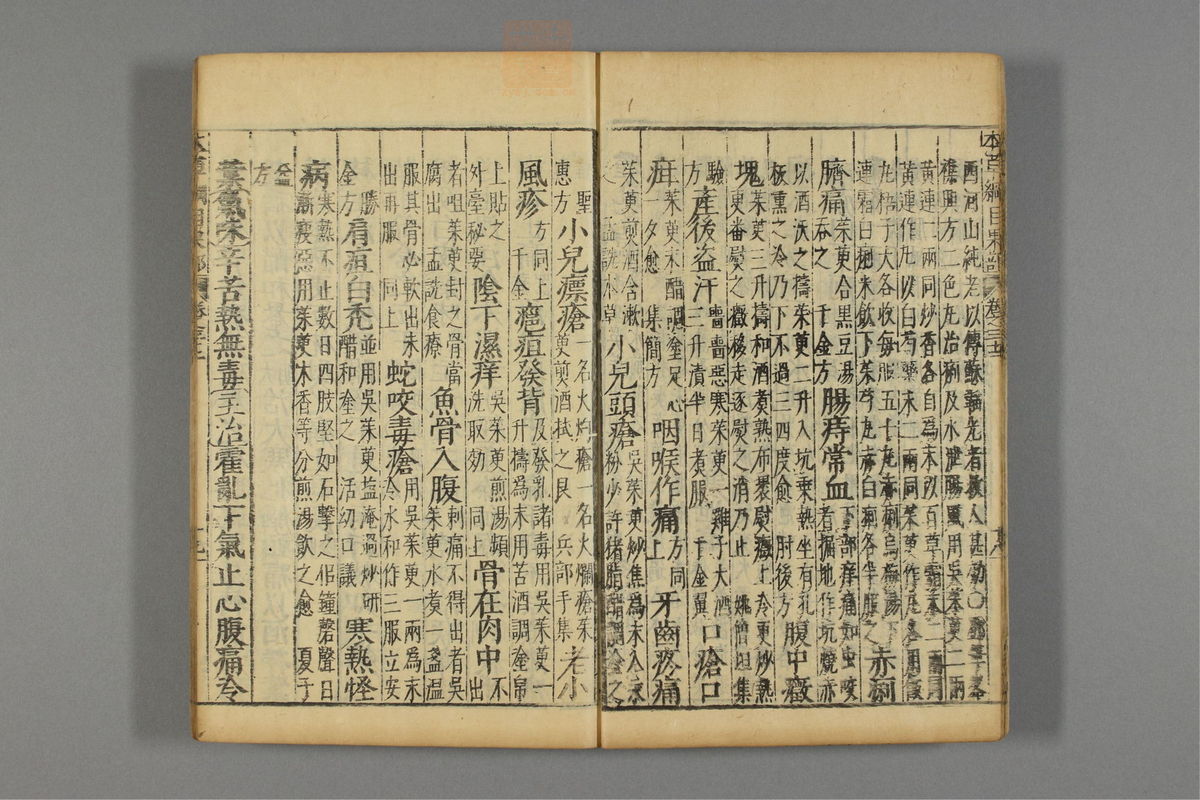 本草綱目果部 卷之三十二
西河山純老以傳蘇韜光者救人甚効○鄧筆峯雜
僊興方二色丸治痢及水泄腸風用吳茱萸二兩
黃連二兩同炒香各自爲末以百草霜末二兩同
黃連作丸以白芍藥末二兩同茱萸作丸各用飯
丸梧子大各收每服五十丸赤痢烏梅湯下
連霜白痢米飲下茱芍丸赤白痢各半服之 赤痢
臍痛 茱萸合黑豆湯吞之 千金方 腸痔常血 下部痒痛如虫咬者掘地作坑燒赤
以酒沃之擣茱萸二升入坑乘熱坐有孔
板熏之冷乃下不過三四度愈 肘後方 腹中癥
塊 茱萸三升擣和酒煮熟布裹熨癥上冷更炒熱
更番熨之癥移走逐熨之消乃止 姚僧坦集
驗方 產後盜汗 嗇嗇惡寒茱萸一雞子大酒三升漬半日煮服 千金翼 口瘡口
疳 茱萸末醋調塗足心一夕愈 集簡方 咽喉作痛 方同上 牙齒疼痛
茱萸煎酒含漱之 孟詵本草 小兒頭瘡 吳茱萸炒焦爲末入汞粉少許猪脂醋調塗之
聖惠方 小兒瘭瘡 一名火灼瘡一名火爛瘡茱萸煎酒拭之良 兵部手集 老小
風疹 方同上 千金 癰疽發背 及發乳諸毒用吳茱萸一升擣爲末用苦酒調塗帛
上貼之 外臺秘要 陰下濕痒 吳茱萸煎湯頻洗取効 同上 骨在肉中 不出
者咀茱萸封之骨當腐出 孟詵食療 魚骨入腹 刺痛不得出者吳茱萸水煮一盞溫
服其骨必軟出未出再服 同上 蛇咬毒瘡 用吳茱萸一兩爲末冷水和作三服立安
勝金方 肩疽白禿 並用吳茱萸盐淹過炒研醋和塗之 活幼口議 寒熱怪
病 寒熱不止數日四肢堅如石擊之佀鐘磬聲日
漸瘦惡用茱萸木香等分煎湯飲之愈 夏子
益方
葉氣味辛苦熱無毒主治霍亂下氣止心腹痛冷
本草綱目果部